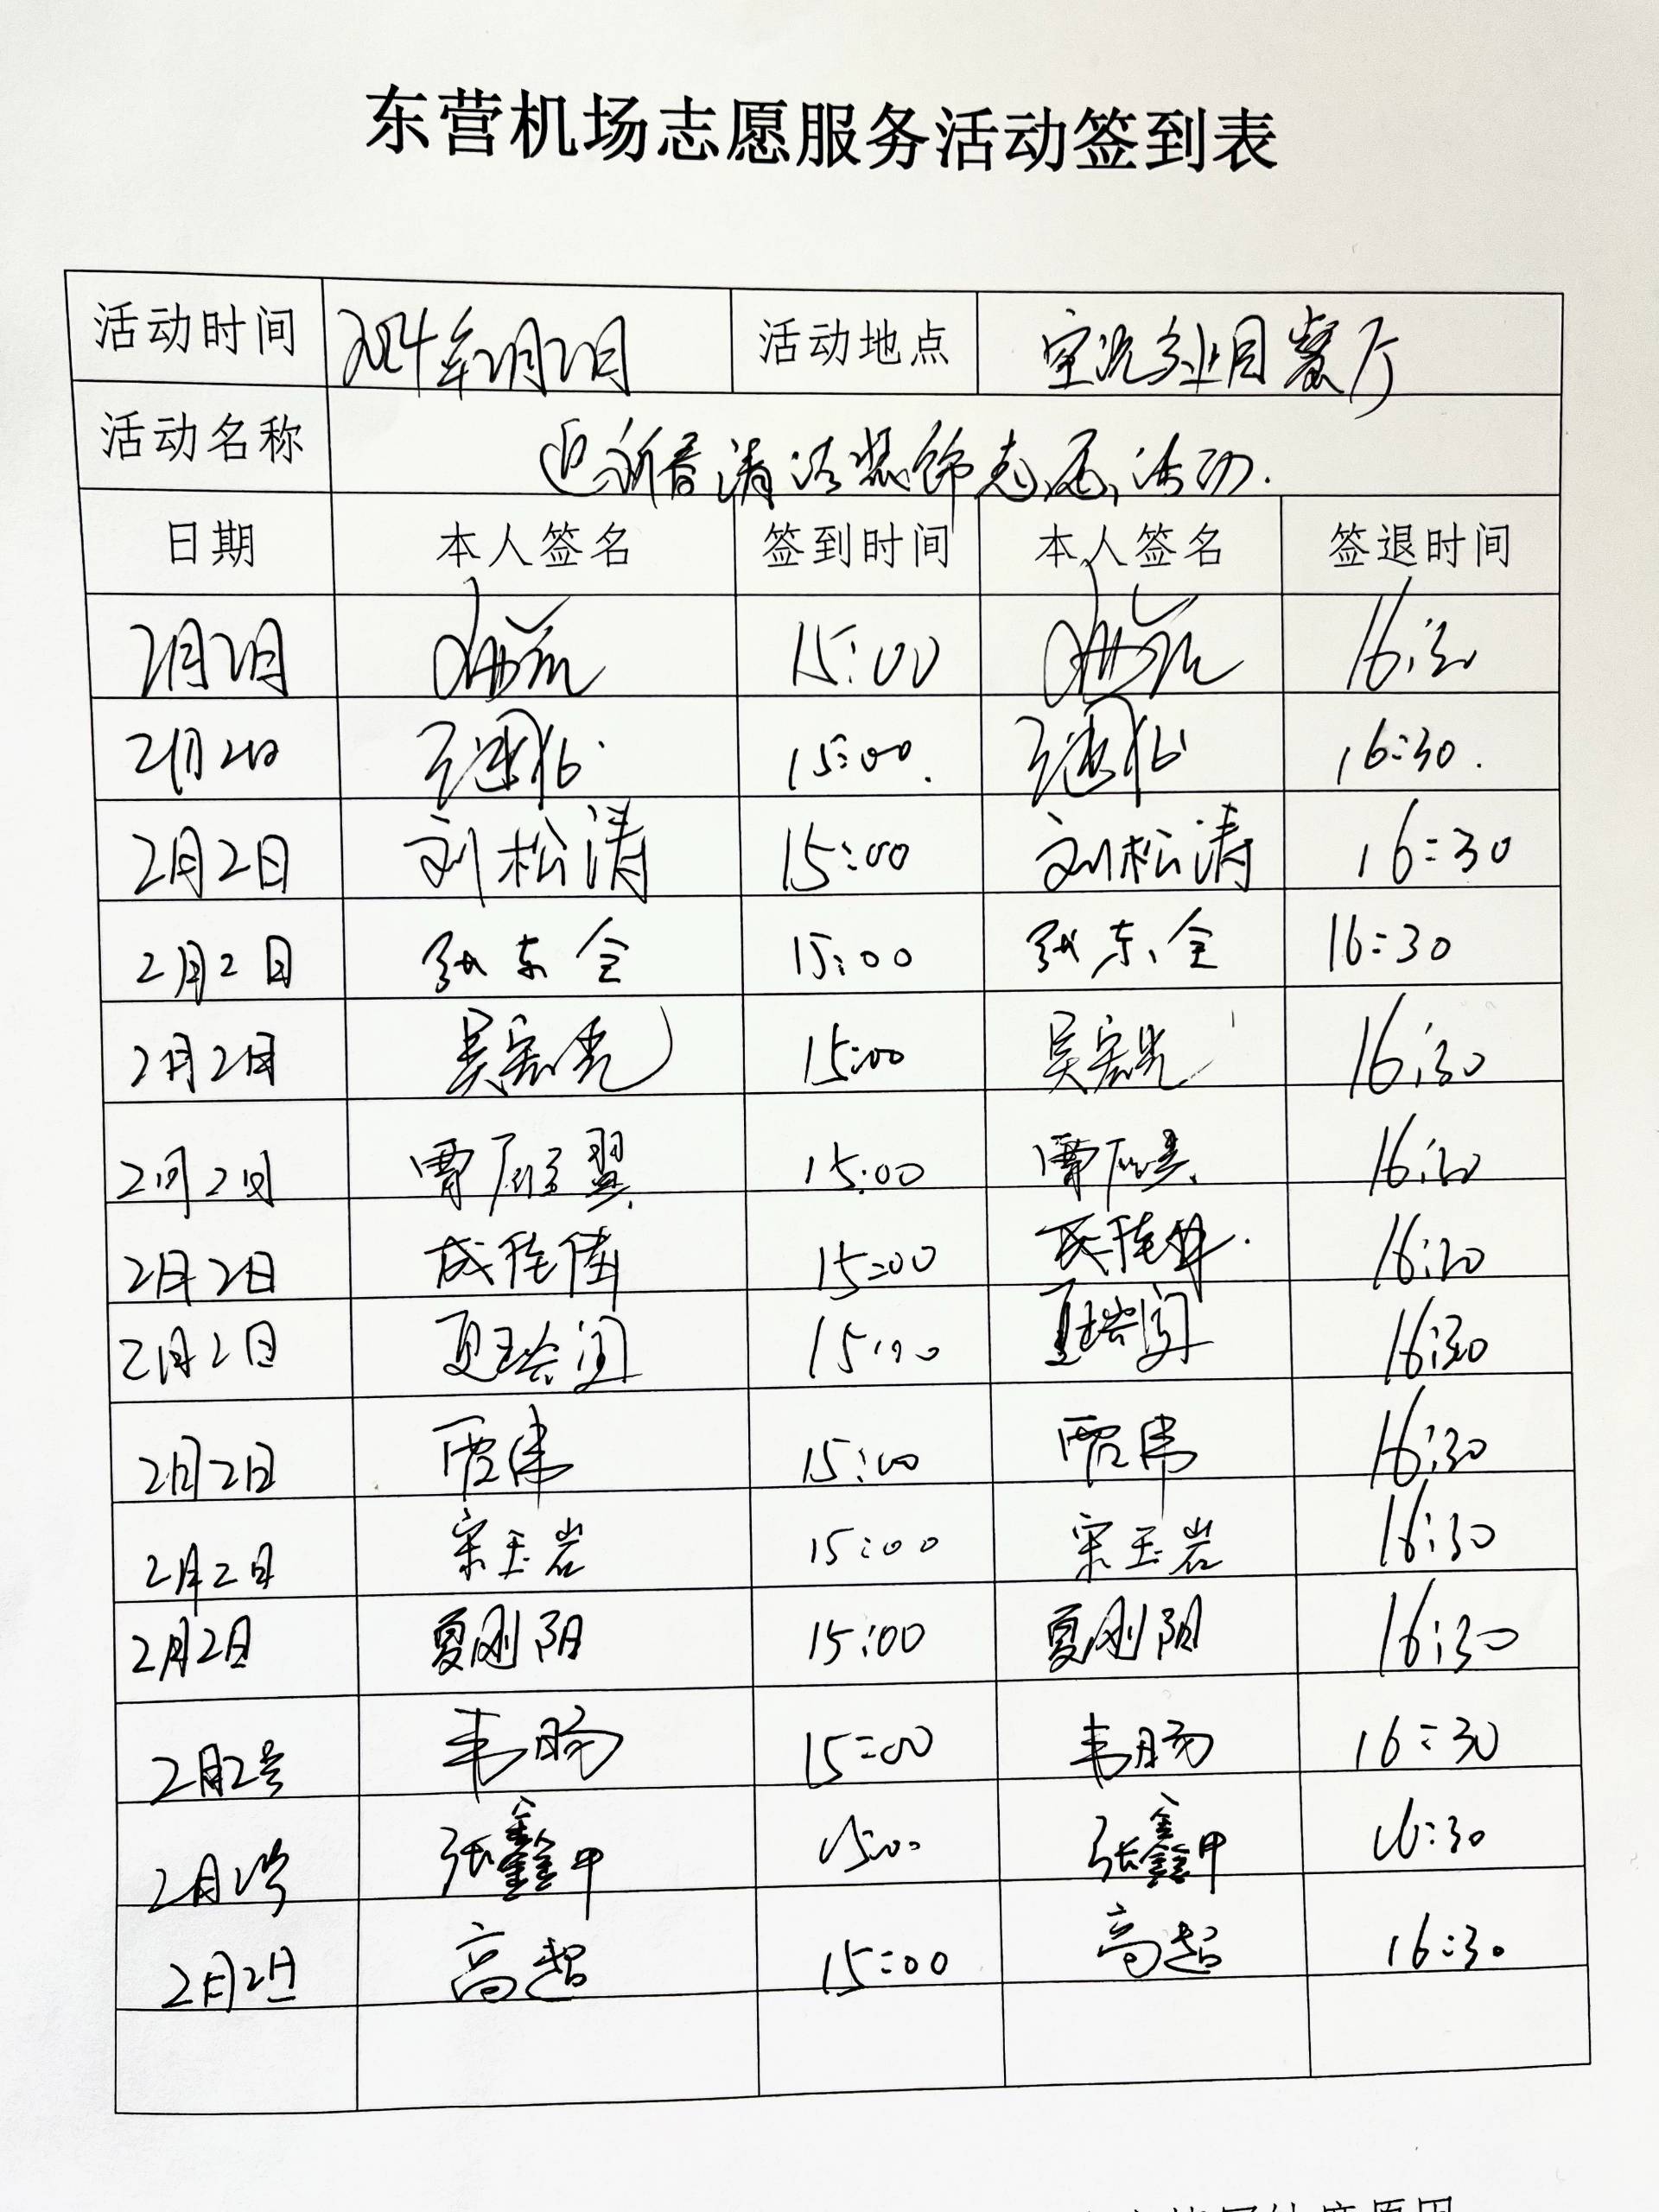 东营机场志愿服务活动签到表
活动时间 2024年2月2日 活动地点 餐厅
活动名称 迎新春清洁装饰志愿活动.
日期 本人签名 签到时间 本人签名 签退时间
2月2日 15:00 16:30
2月2日 15:00. 16:30.
2月2日 刘松涛 15:00 刘松涛 16:30
2月2日 张东全 15:00 张东全 16:30
2月2日 吴宏光 15:00 吴宏光 16:30
2月2日 15:00 16:30
2月2日 15:00 16:30
2月2日 夏瑞闰 15:00 夏瑞闰 16:30
2月2日 贾伟 15:00 贾伟 16:30
2月2日 宋玉岩 15:00 宋玉岩 16:30
2月2日 夏刚阳 15:00 夏刚阳 16:30
2月2号 韦肠 15:00 韦肠 16:30
2月2号 张鑫甲 15:00 张鑫甲 16:30
2月2日 高超 15:00 高超 16:30